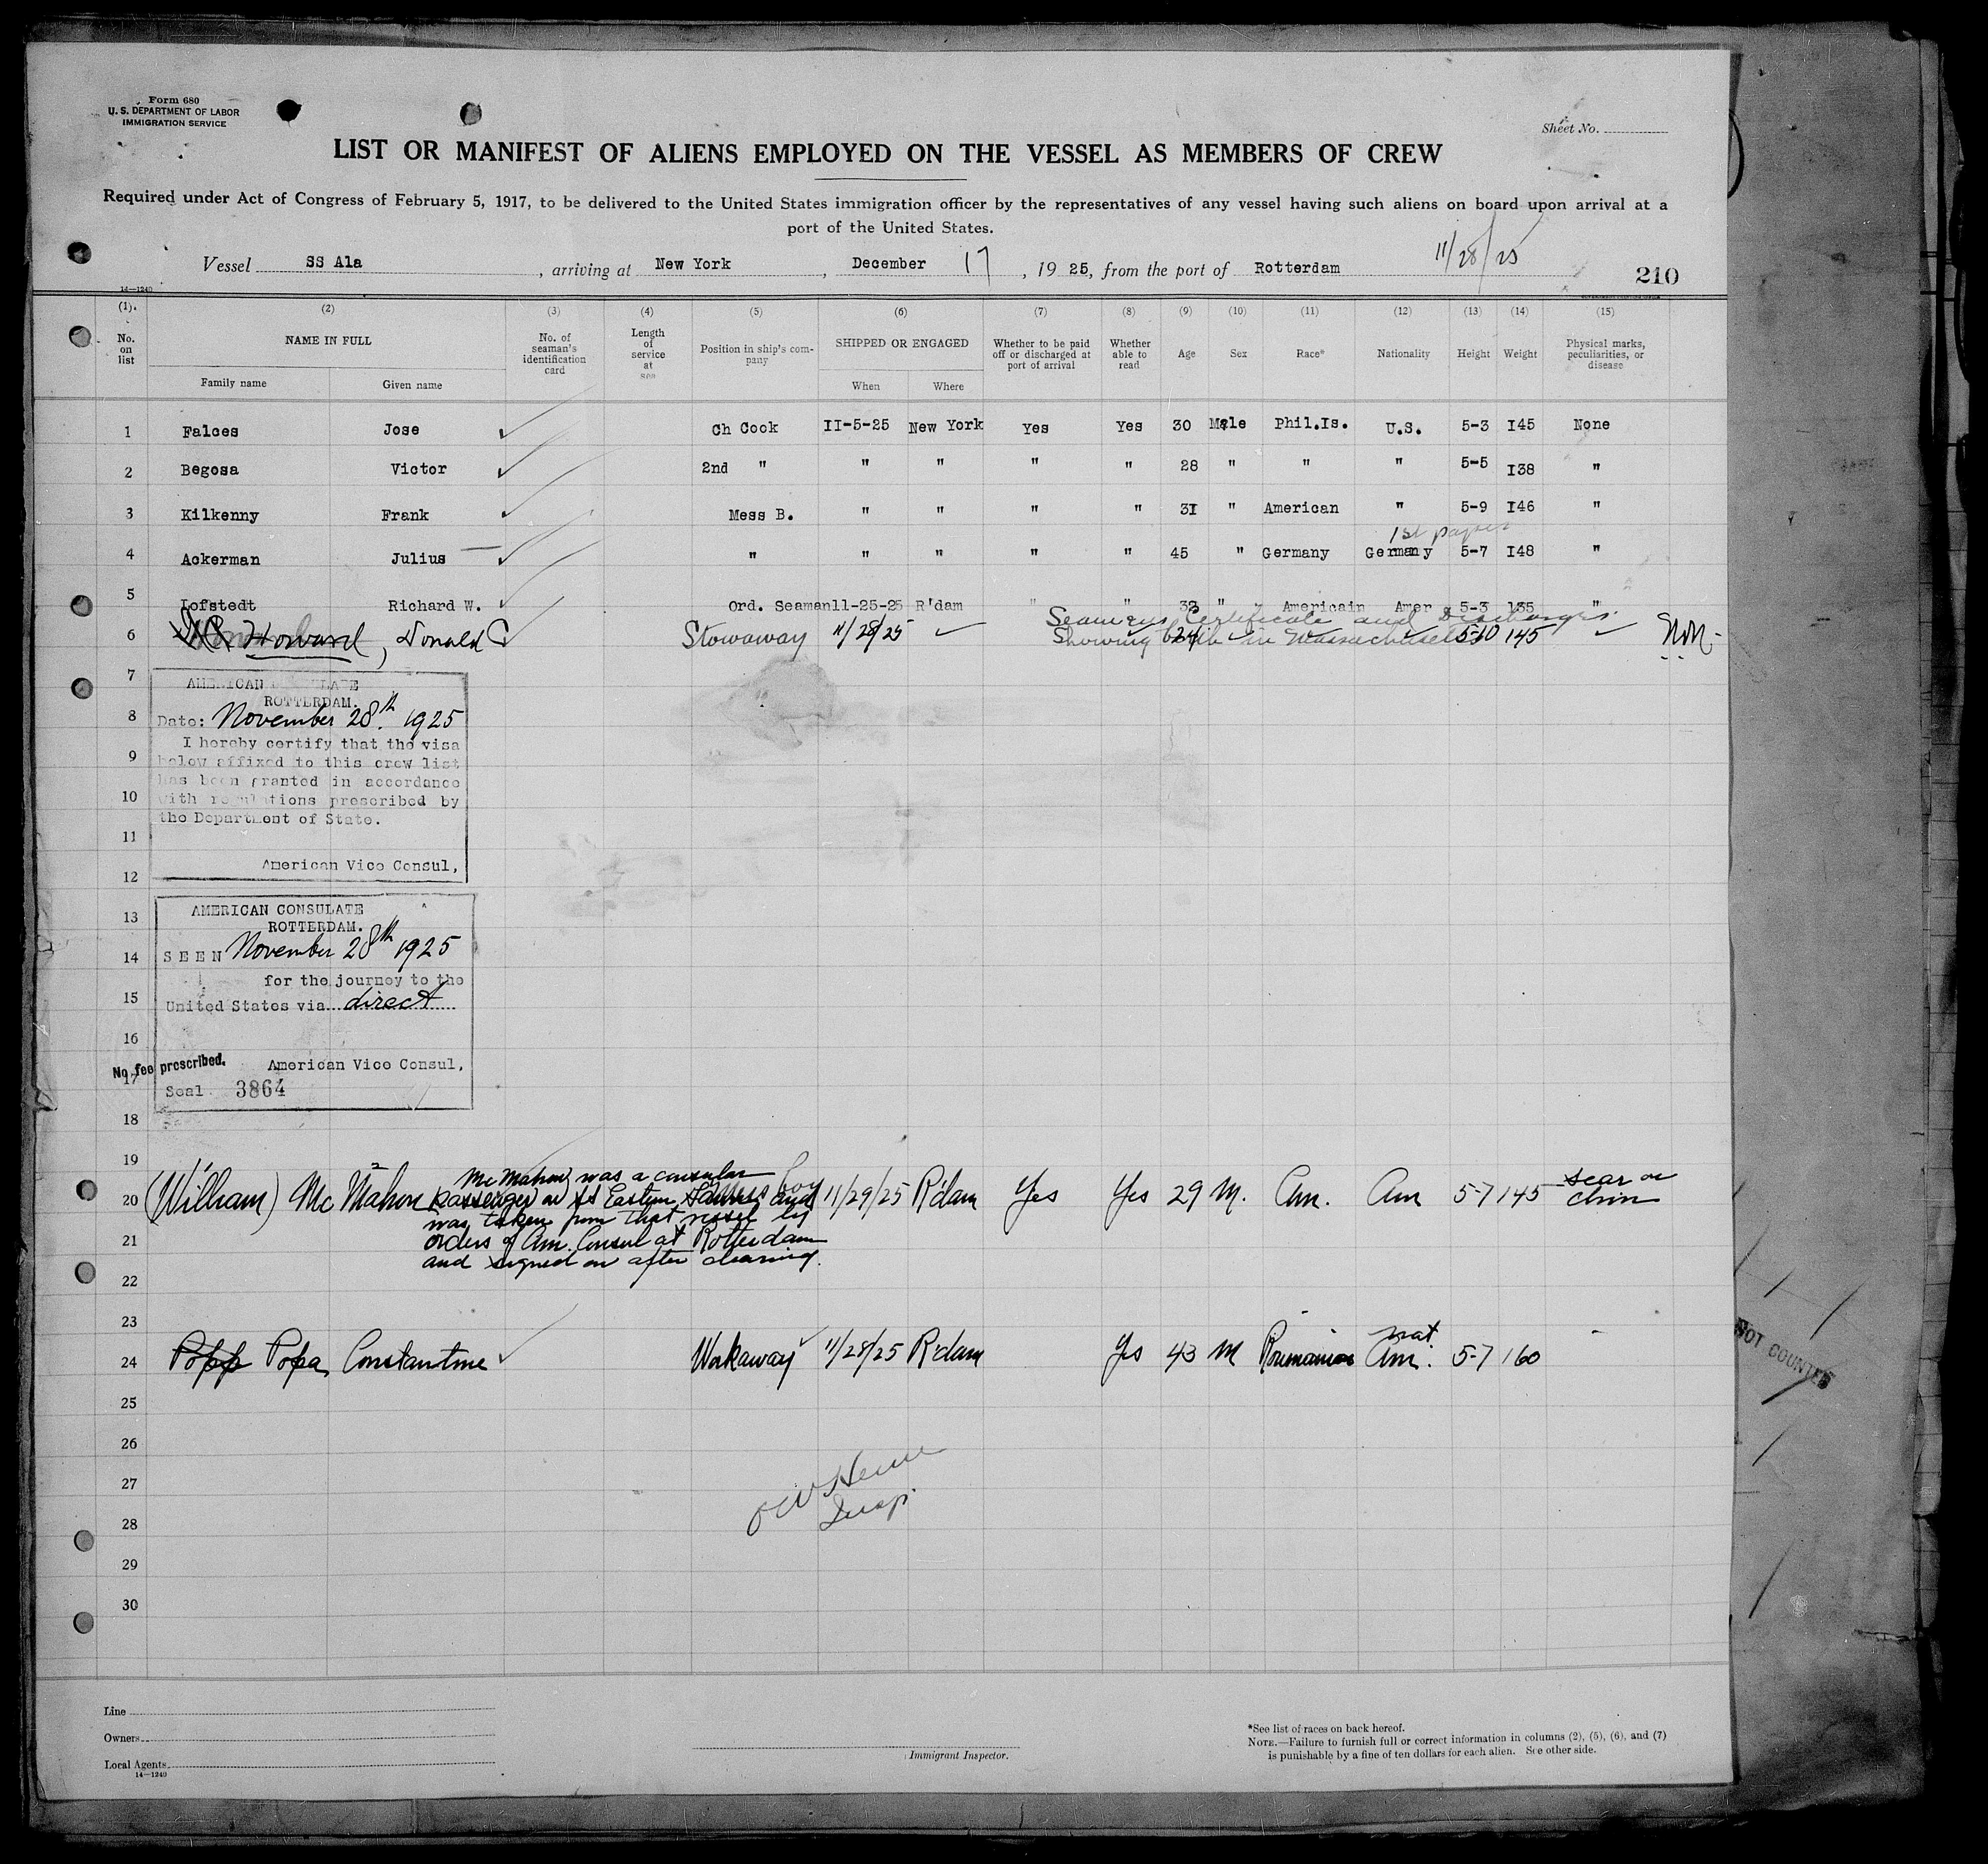 Form 680
U. S. DEPARTMENT OF LABOR
IMMIGRATION SERVICE
Sheet No.
LIST OR MANIFEST OF ALIENS EMPLOYED ON THE VESSEL AS MEMBERS OF CREW
Required under Act of Congress of February 5, 1917, to be delivered to the United States immigration officer by the representatives of any vessel having such aliens on board upon arrival at a
port of the United States.
11/28/25
Vessel SS Ala, arriving at New York, December 17, 1925, from the port of Rotterdam
210
14—1240
(1). (2) (3) (4) (5) (6) (7) (8) (9) (10) (11) (12) (13) (14) (15)
No. on list NAME IN FULL No. of seaman's identification card Length of service at sea Position in ship's company SHIPPED OR ENGAGED Whether to be paid off or discharged at port of arrival Whether able to read Age Sex Race* Nationality Height Weight Physical marks, peculiarities, or disease
Family name Given name When Where
1 Falces Jose Ch Cook II-5-25 New York Yes Yes 30 Male Phil.Is. U.S. 5-3 I45 None
2 Begosa Victor 2nd " " " " " 28 " " " 5-5 I38 "
3 Kilkenny Frank Mess B. " " " " 3I " American " 5-9 I46 "
1st papers
4 Ackerman Julius " " " " " 45 " Germany Germany 5-7 I48 "
5 Lofstedt Richard W. Ord. Seaman 11-25-25 R'dam " " 32 " Americain Amer 5-3 135 "
Seamens Certificate and Discharges
6 Howard, Donald S Stowaway 11/28/25 Showing birth in Massachusetts 24 5-10 145
7
AMERICAN CONSULATE
ROTTERDAM.
8 Date: November 28th. 1925
I hereby certify that the visa
9 below affixed to this crew list
has been granted in accordance
10 with regulations prescribed by
the Department of State.
11
American Vice Consul,
12
13 AMERICAN CONSULATE
ROTTERDAM.
14 SEEN November 28th 1925
for the journey to the
15 United States via direct
16
No fee prescribed. American Vice Consul,
17 Seal 3864
18
19
Mc Mahon was a consular
20 (William) Mc Mahon passenger on SS Eastern and 11/29/25 R'dam Yes Yes 29 M. Am. Am 5-7 145 scar on chin
was taken from that vessel by
21 orders of Am. Consul at Rotterdam
and signed on after clearing.
22
23
nat
24 Popp Popa Constantine Workaway 11/28/25 R'dam Yes 43 M Roumanian Am. 5-7 160 -
25
26
27
Insp.
28
29
30
NOT COUNTED
Line
Owners
Local Agents
14—1240
Immigrant Inspector.
*See list of races on back hereof.
NOTE.—Failure to furnish full or correct information in columns (2), (5), (6), and (7)
is punishable by a fine of ten dollars for each alien. See other side.